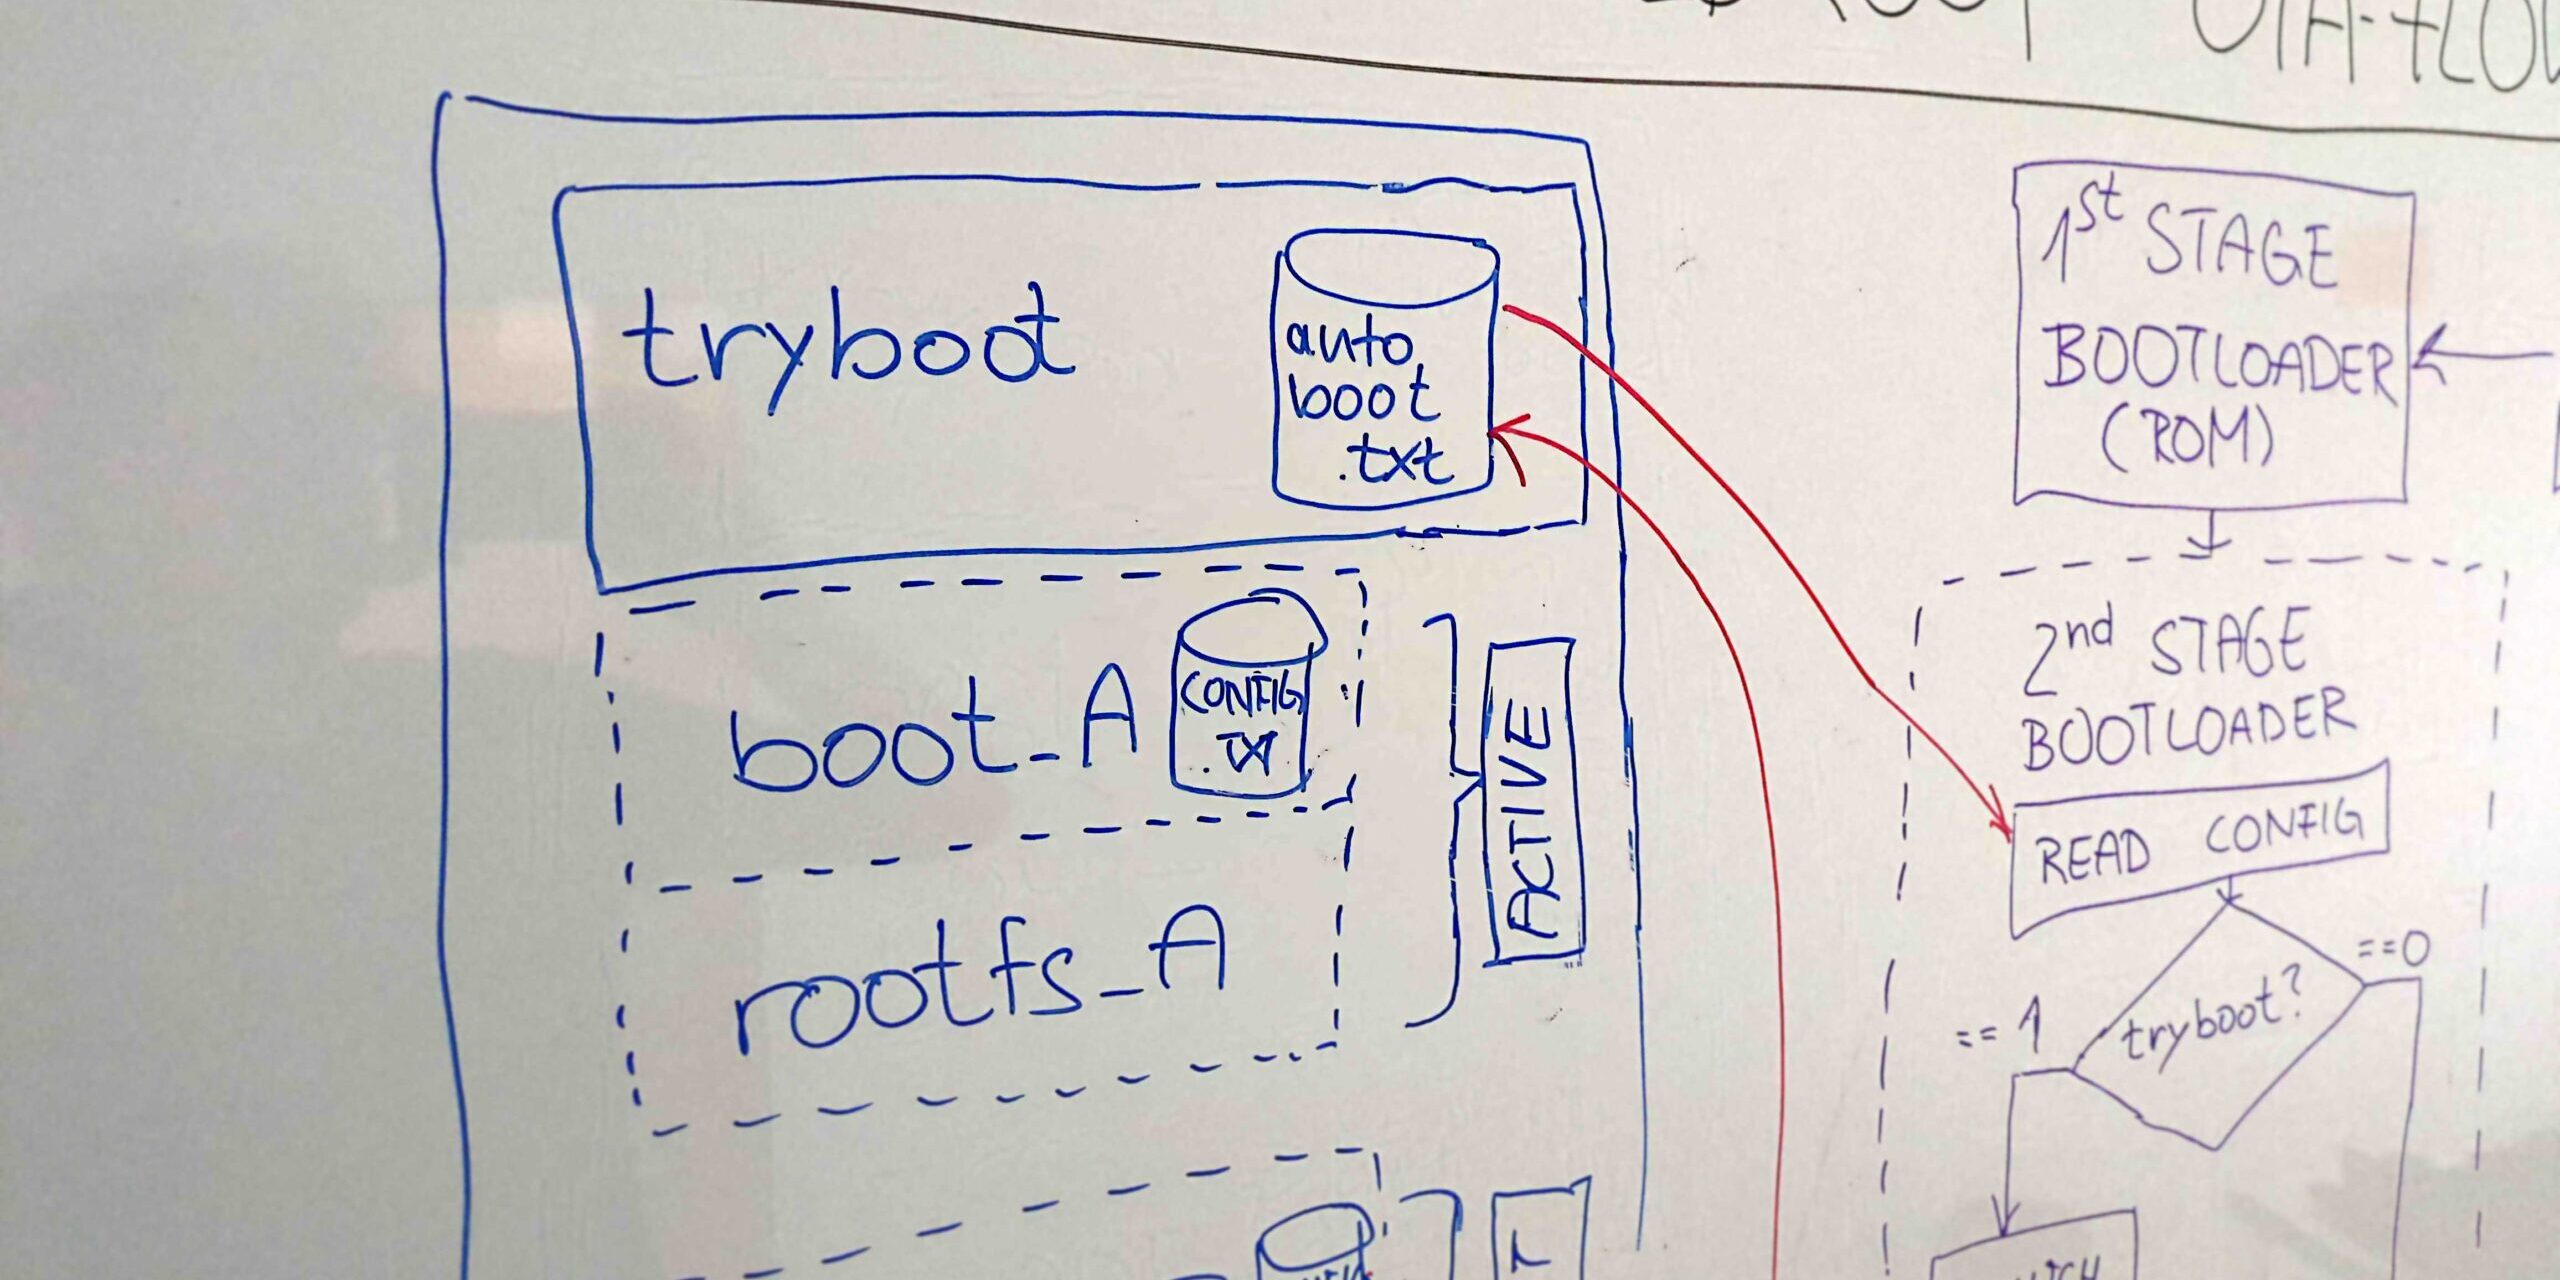 OTA-FLOW
tryboot
auto
boot
.txt
boot_A
CONFIG
.txt
rootfs_A
ACTIVE
1st STAGE
BOOTLOADER
(ROM)
2nd STAGE
BOOTLOADER
READ CONFIG
tryboot?
==0
==1